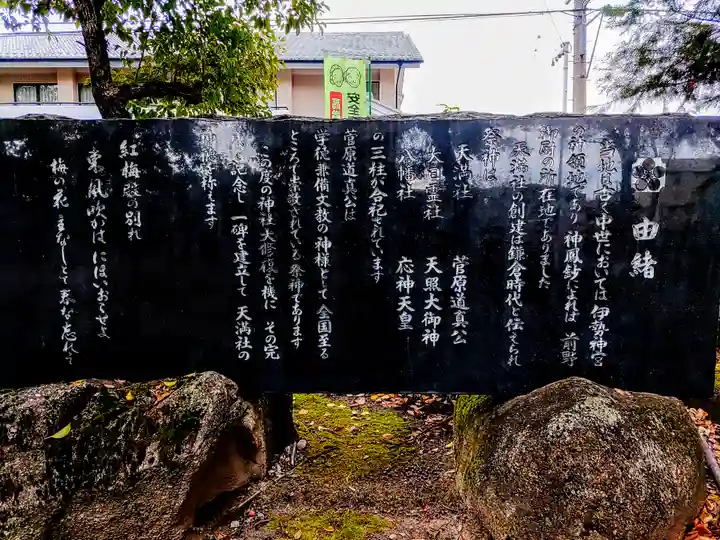 由緒
当地は古く中世においては 伊勢神宮
の神領地であり 神鳳鈔によれば 前野
御厨の所在地でありました
天満社の創建は鎌倉時代と伝えられ
祭神は
天満社 菅原道真公
大日霊社 天照大御神
八幡社 応神天皇
の三柱が合祀されています
菅原道真公は
学徳兼備文教の神様として 全国至る
ところに崇敬されている祭神であります
この度の神社大修復を機に その完
成を記念し 一碑を建立して 天満社の
称します
紅梅殿の別れ
東風吹かば にほひおこせよ
梅の花 主なしとて 春な忘れそ
安全